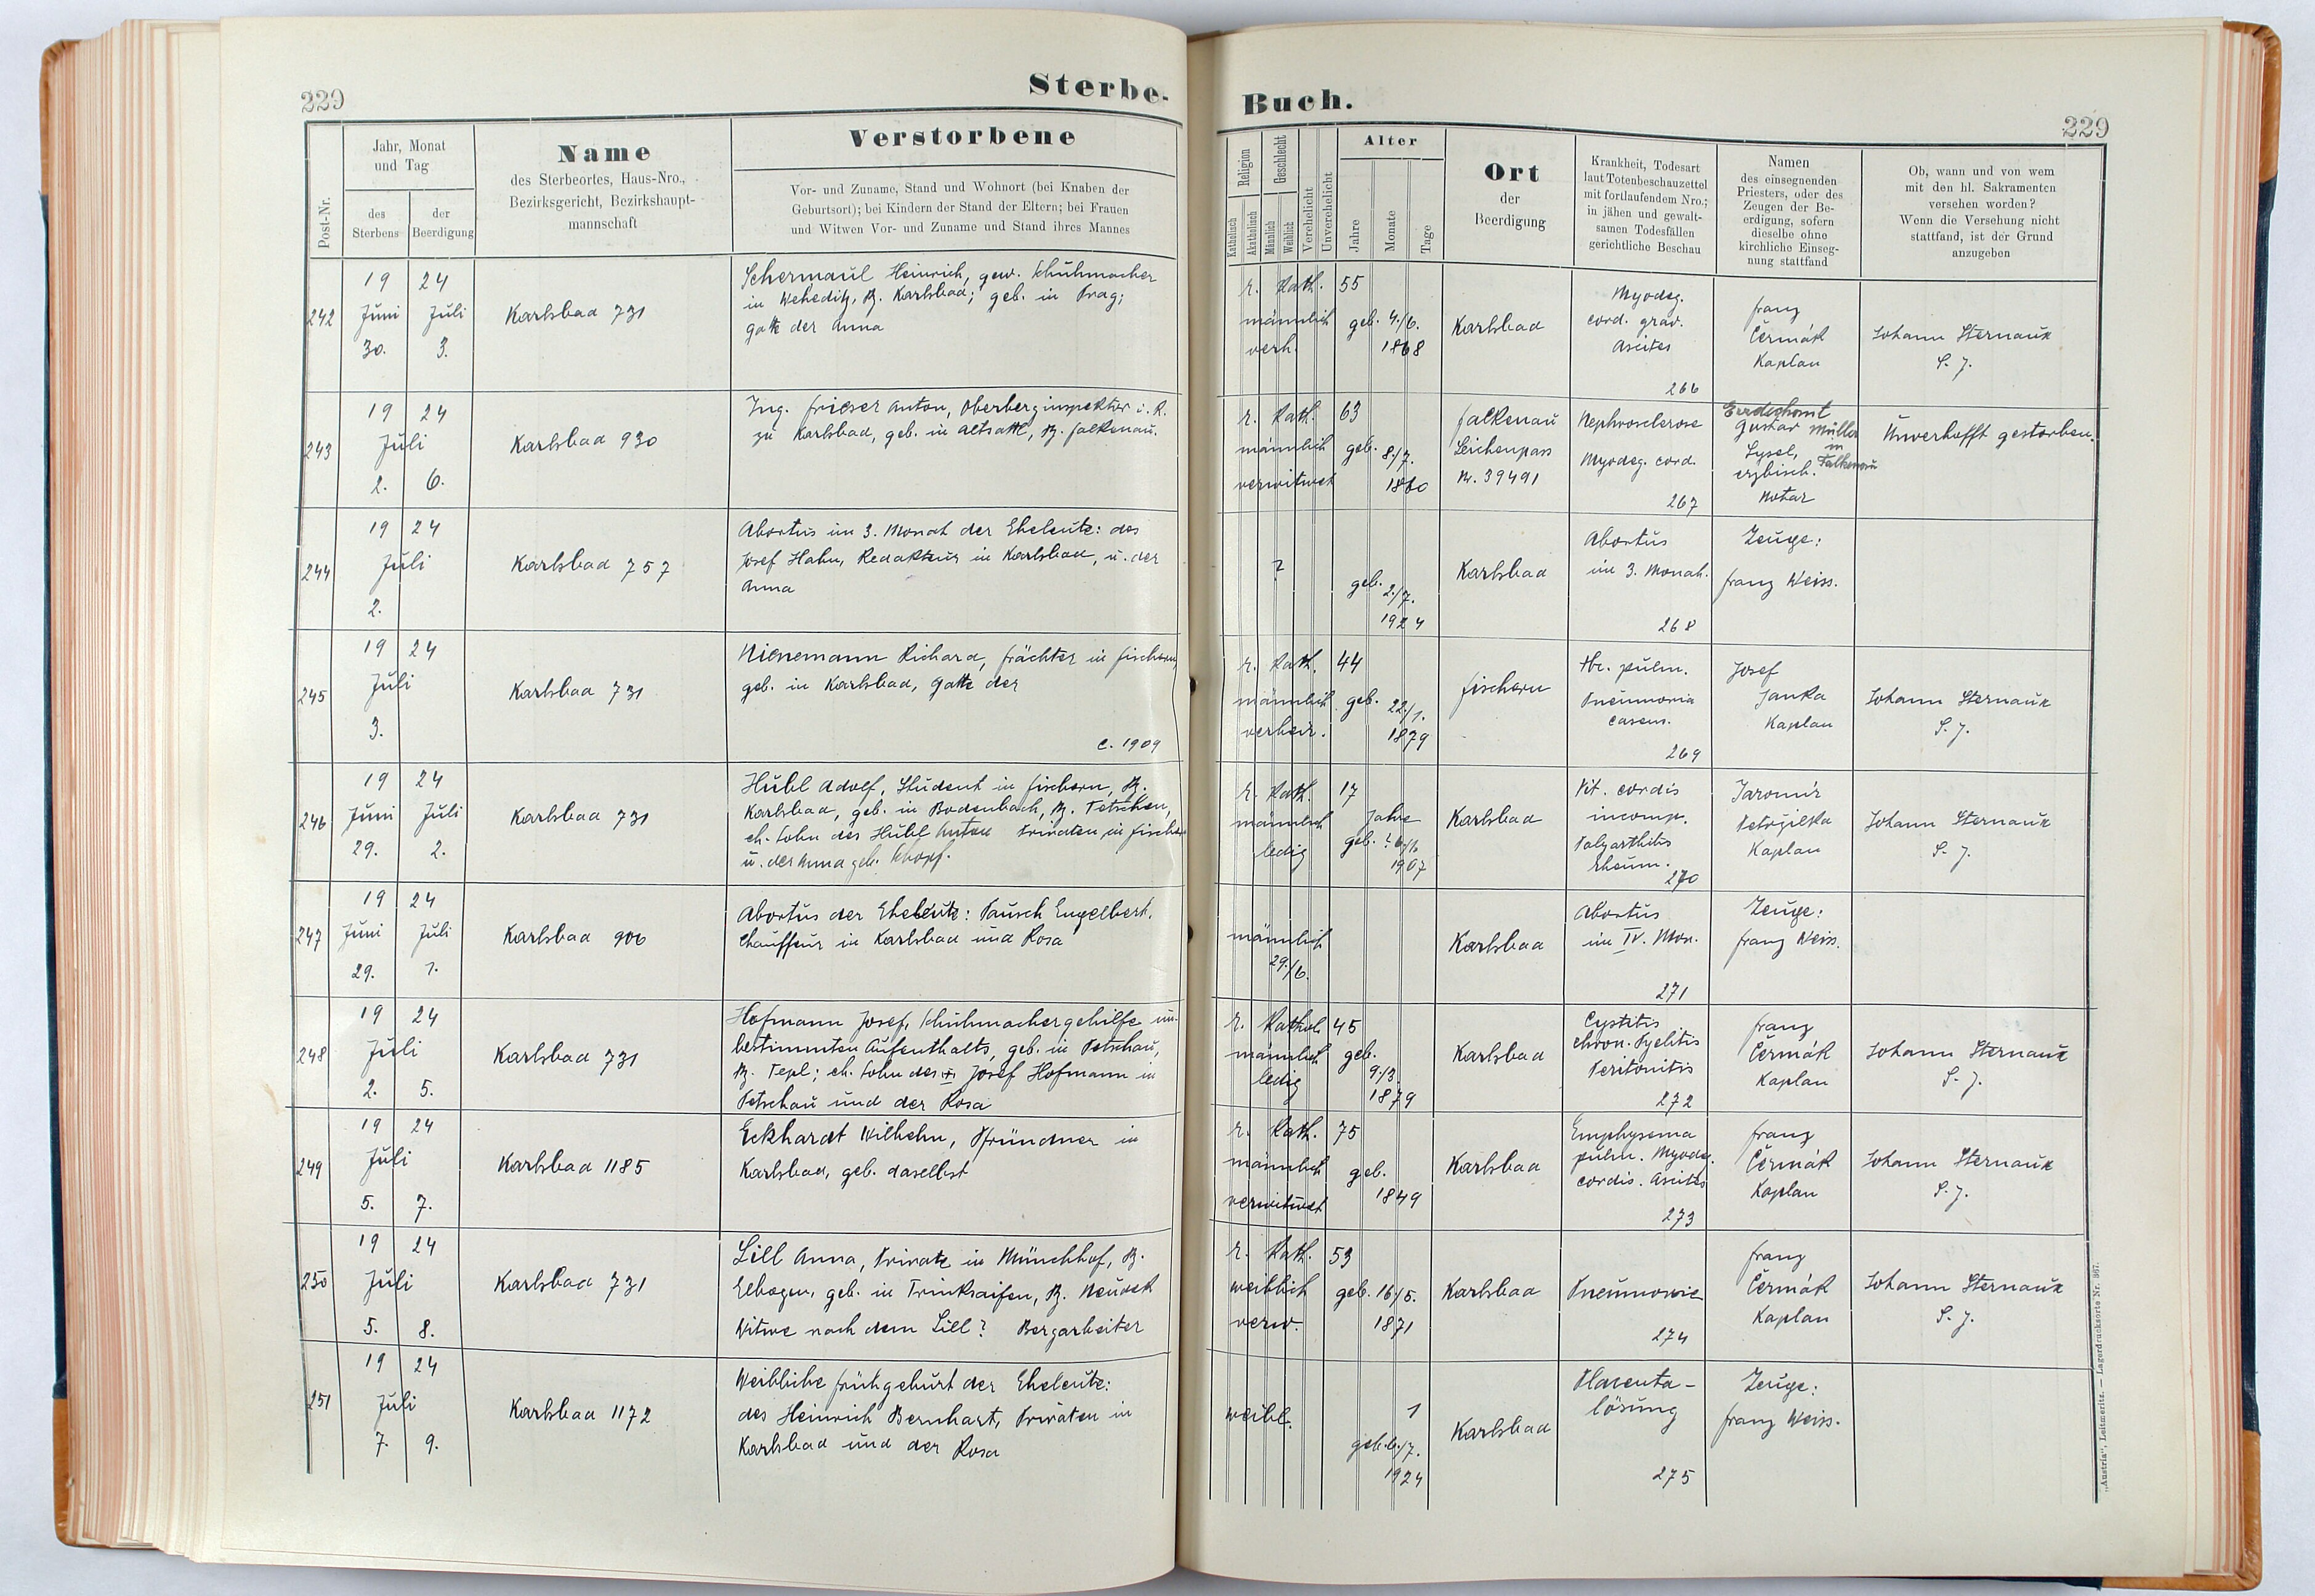 229
Sterbe-
Post-Nr.
Jahr, Monat
und Tag
des
Sterbens
der
Beerdigung
Name
des Sterbeortes, Haus-Nro.,
Bezirksgericht, Bezirkshaupt-
mannschaft
Verstorbene
Vor- und Zuname, Stand und Wohnort (bei Knaben der
Geburtsort); bei Kindern der Stand der Eltern; bei Frauen
und Witwen Vor- und Zuname und Stand ihres Mannes
242
19 24
Juni Juli
30. 3.
Karlsbad 731
Schermaul Heinrich, gew. Schuhmacher
in Weheditz, B. Karlsbad; geb. in Prag;
Gatte der Anna
243
19 24
Juli
2. 6.
Karlsbad 930
Ing. Frieser Anton, Oberberginspektor i. R.
zu Karlsbad, geb. in Altsattl, B. Falkenau.
244
19 24
Juli
2.
Karlsbad 757
Abortus im 3. Monat der Eheleute: des
Josef Hahn, Redakteur in Karlsbad, u. der
Anna
245
19 24
Juli
3.
Karlsbad 731
Nienemann Richard, Frächter in Fischern,
geb. in Karlsbad, Gatte der
c. 1909
246
19 24
Juni Juli
29. 2.
Karlsbad 731
Hübl Adolf, Student in Fischern, B.
Karlsbad, geb. in Bodenbach, B. Tetschen,
eh. Sohn des Hübl Anton Privaten, in Fischern
u. der Anna geb. Schopf.
247
19 24
Juni Juli
29. 1.
Karlsbad 906
Abortus der Eheleute: Pausch Engelbert,
Chauffeur in Karlsbad und Rosa
248
19 24
Juli
2. 5.
Karlsbad 731
Hofmann Josef, Schuhmachergehilfe un-
bestimmten Aufenthalts, geb. in Petschau,
B. Tepl; eh. Sohn des Josef Hofmann in
Petschau und der Rosa
249
19 24
Juli
5. 7.
Karlsbad 1185
Eckhardt Wilhelm, Pfründner in
Karlsbad, geb. daselbst
250
19 24
Juli
5. 8.
Karlsbad 731
Lill Anna, Private in Münchhof, B.
Elbogen, geb. in Trinksaifen, B. Neudek
Witwe nach dem Lill? Bergarbeiter
251
19 24
Juli
7. 9.
Karlsbad 1172
Weibliche Frühgeburt der Eheleute:
des Heinrich Bernhart, Privaten in
Karlsbad und der Rosa
Buch.
229
Religion
Katholisch
Akatholisch
Geschlecht
Männlich
Weiblich
Verehelicht
Unverehelicht
Alter
Jahre
Monate
Tage
Ort
der
Beerdigung
Krankheit, Todesart
laut Totenbeschauzettel
mit fortlaufendem Nro.;
in jähen und gewalt-
samen Todesfällen
gerichtliche Beschau
Namen
des einsegnenden
Priesters, oder des
Zeugen der Be-
erdigung, sofern
dieselbe ohne
kirchliche Einseg-
nung stattfand
Ob, wann und von wem
mit den hl. Sakramenten
versehen worden?
Wenn die Versehung nicht
stattfand, ist der Grund
anzugeben
r. Kath. 55
männlich geb. 4./6.
verh. 1868
Karlsbad
Myodeg.
cord. grav.
Ascites
266
Franz
Čermák
Kaplan
Johann Sternaux
S. J.
r. Kath. 63
männlich geb. 8./7.
verwitwet 1860
Falkenau
Leichenpass
Nr. 39491
Nephrosclerose
Myodeg. cord.
267
Gustav Müller
in
Falkenau
erzbisch.
Notar
Unverhofft gestorben.
?
geb. 2./7.
1924
Karlsbad
Abortus
im 3. Monat.
268
Zeuge:
Franz Weiss.
r. Kath. 44
männlich geb. 22./1.
verheir. 1879
Fischern
Tbc. pulm.
Pneumonia
caseos.
269
Josef
Janka
Kaplan
Johann Sternaux
S. J.
r. Kath. 17
männlich Jahre
ledig geb.
1907
Karlsbad
Vit. cordis
incomp.
Polyarthitis
Rheum.
270
Jaromír
Petržilka
Kaplan
Johann Sternaux
S. J.
männlich
29./6.
Karlsbad
Abortus
im IV. Mon.
271
Zeuge:
Franz Weiss.
r. Kathol. 45
männlich geb.
9./3.
ledig 1879
Karlsbad
Cystitis
chron. Pyelitis
Peritonitis
272
Franz
Čermák
Kaplan
Johann Sternaux
S. J.
r. Kath. 75
männlich geb.
verwitwet 1849
Karlsbad
Emphysema
pulm. Myodeg.
cordis. Ascites
273
Franz
Čermák
Kaplan
Johann Sternaux
S. J.
r. Kath. 53
weiblich geb. 16/5.
verw. 1871
Karlsbad
Pneumonie
274
Franz
Čermák
Kaplan
Johann Sternaux
S. J.
weibl. 1
geb. 6./7.
1924
Karlsbad
Placenta-
lösung
275
Zeuge:
Franz Weiss.
„Austria", Leitmeritz. — Lagerdrucksorte Nr. 367.